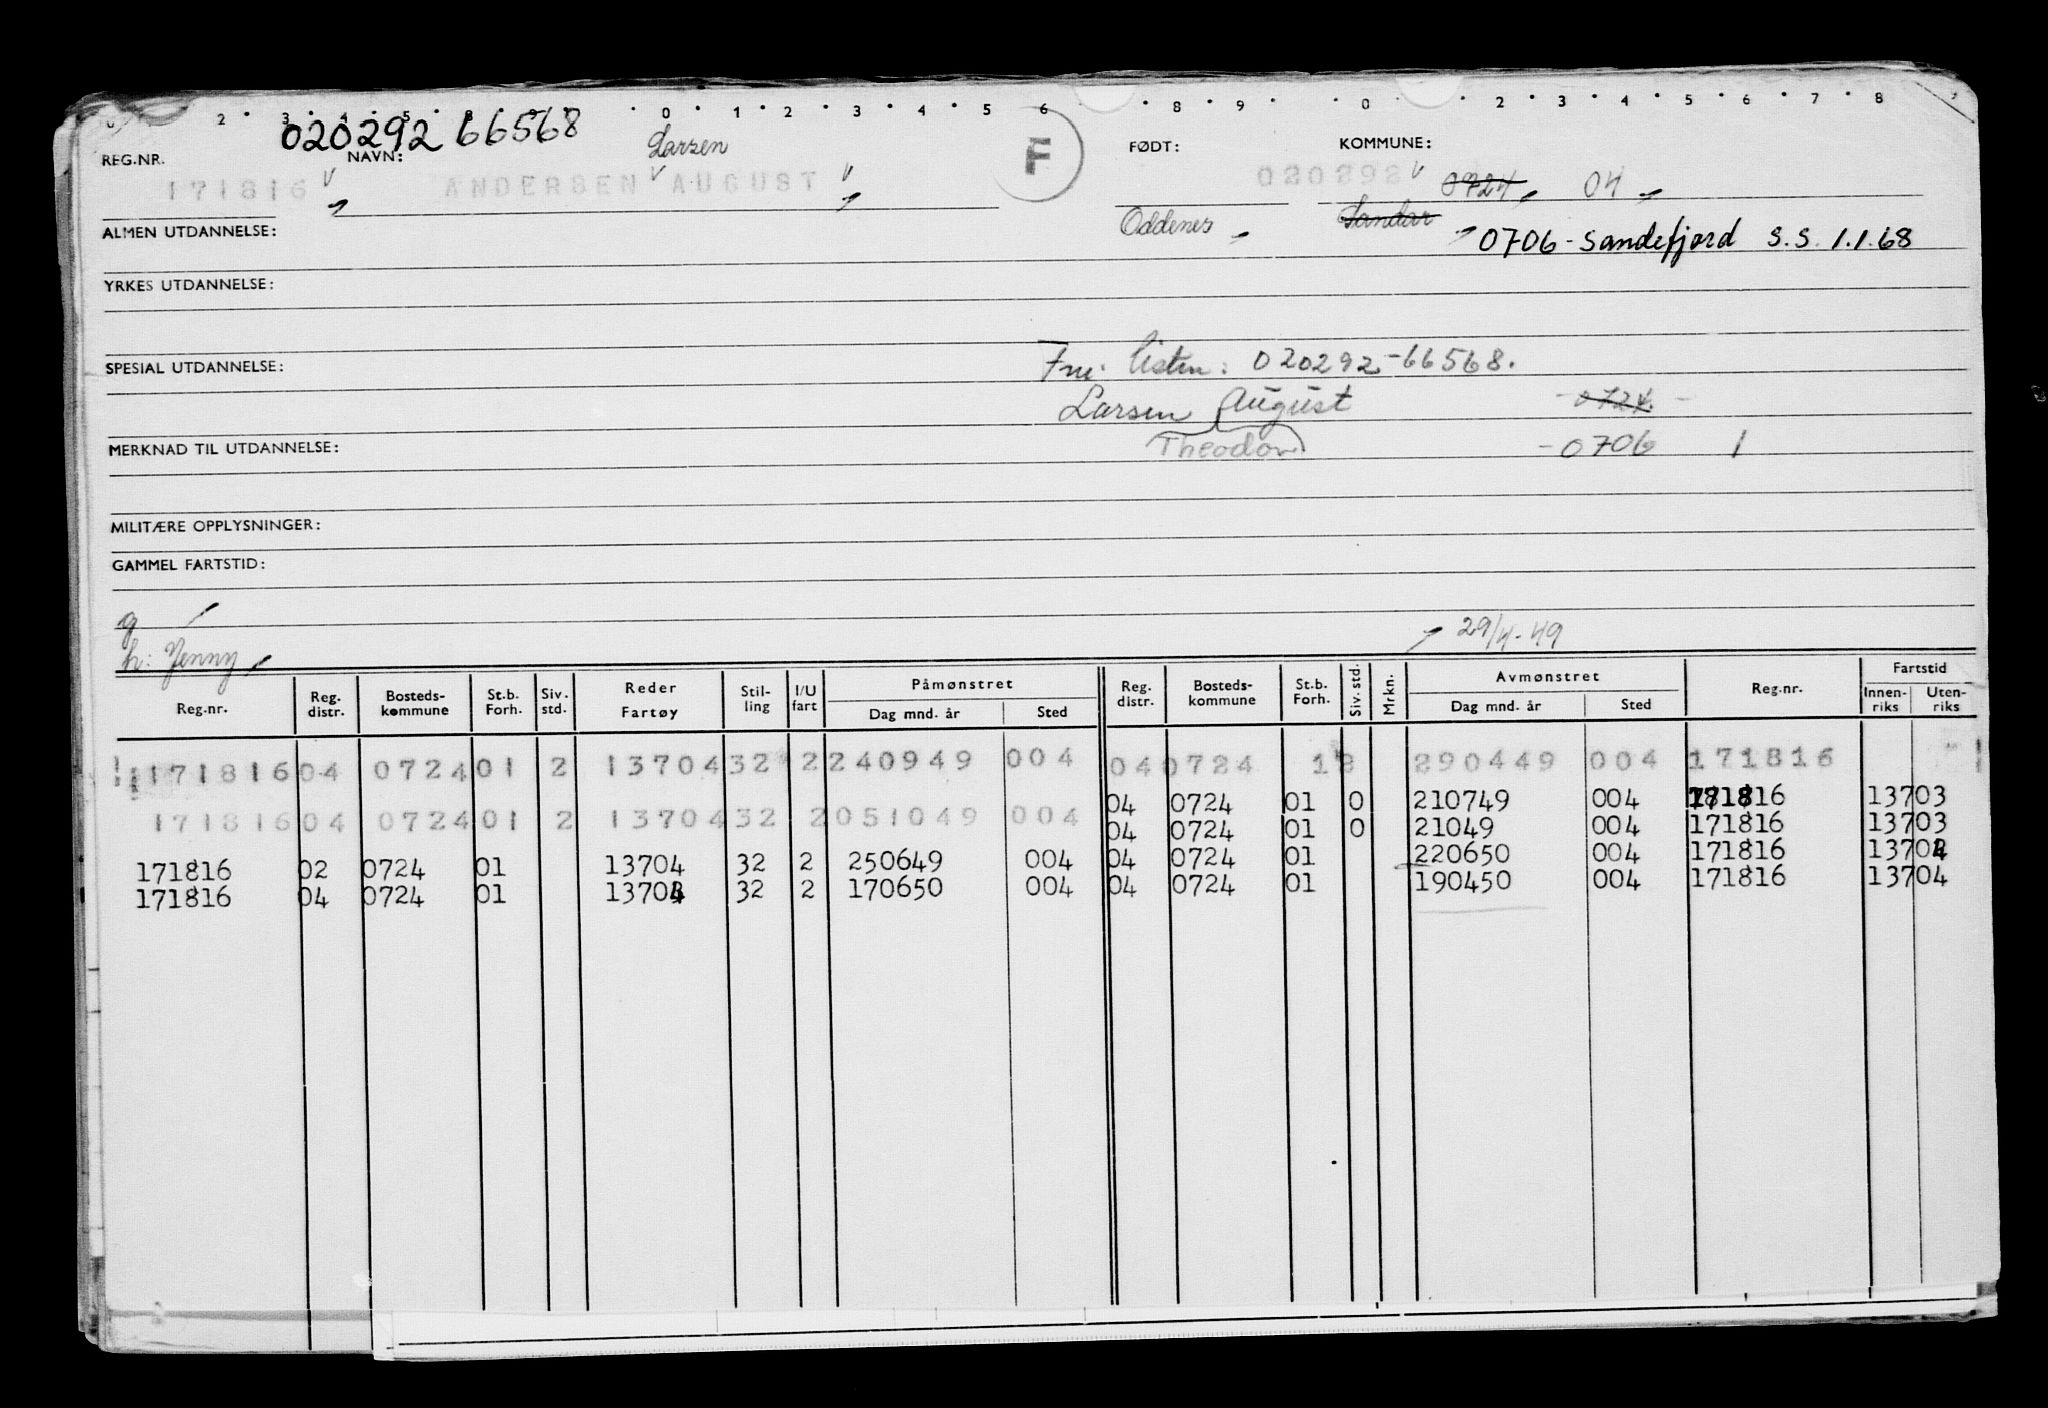 2 3 4 5 6 0 1 2 3 4 5 6 8 9 0 2 3 4 5 6 7 8
020292 66568
REG.NR. NAVN: Larsen F FØDT: KOMMUNE:
171816 ANDERSEN AUGUST 020292 0724 04
Oddenes Sandar 0706 - Sandefjord S.S. 1.1.68
ALMEN UTDANNELSE:
YRKES UTDANNELSE:
Fni. listen: 020292-66568.
SPESIAL UTDANNELSE:
Larsen August - 0724. -
Theodor - 0706 1
MERKNAD TIL UTDANNELSE:
MILITÆRE OPPLYSNINGER:
GAMMEL FARTSTID:
g
h: Jenny 29/4-49
Reg.nr. Reg. distr. Bosteds-kommune St.b. Forh. Siv. std. Reder Fartøy Stil-ling I/U fart Påmønstret Dag mnd. år Sted Reg. distr. Bosteds-kommune St.b. Forh. Siv. std. Mrkn. Avmønstret Dag mnd. år Sted Reg.nr. Fartstid Innen-riks Uten-riks
171816 04 0724 01 2 13704 32 2 240949 004 04 0724 12 290449 004 171816
04 0724 01 0 210749 004 171816 13703
171816 04 0724 01 2 13704 32 2 051049 004 04 0724 01 0 21049 004 171816 13703
171816 02 0724 01 13704 32 2 250649 004 04 0724 01 220650 004 171816 13704
171816 04 0724 01 13704 32 2 170650 004 04 0724 01 190450 004 171816 13704